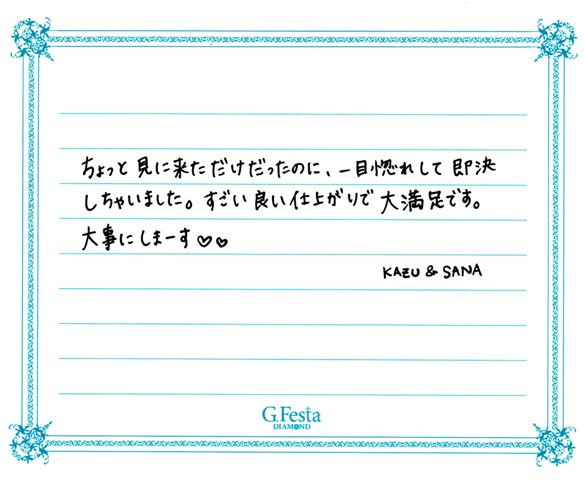 ちょっと見に来ただけだったのに、一目惚れして即決
しちゃいました。すごい良い仕上がりで大満足です。
大事にしまーす♡♡
KAZU & SANA
G.Festa
DIAMOND